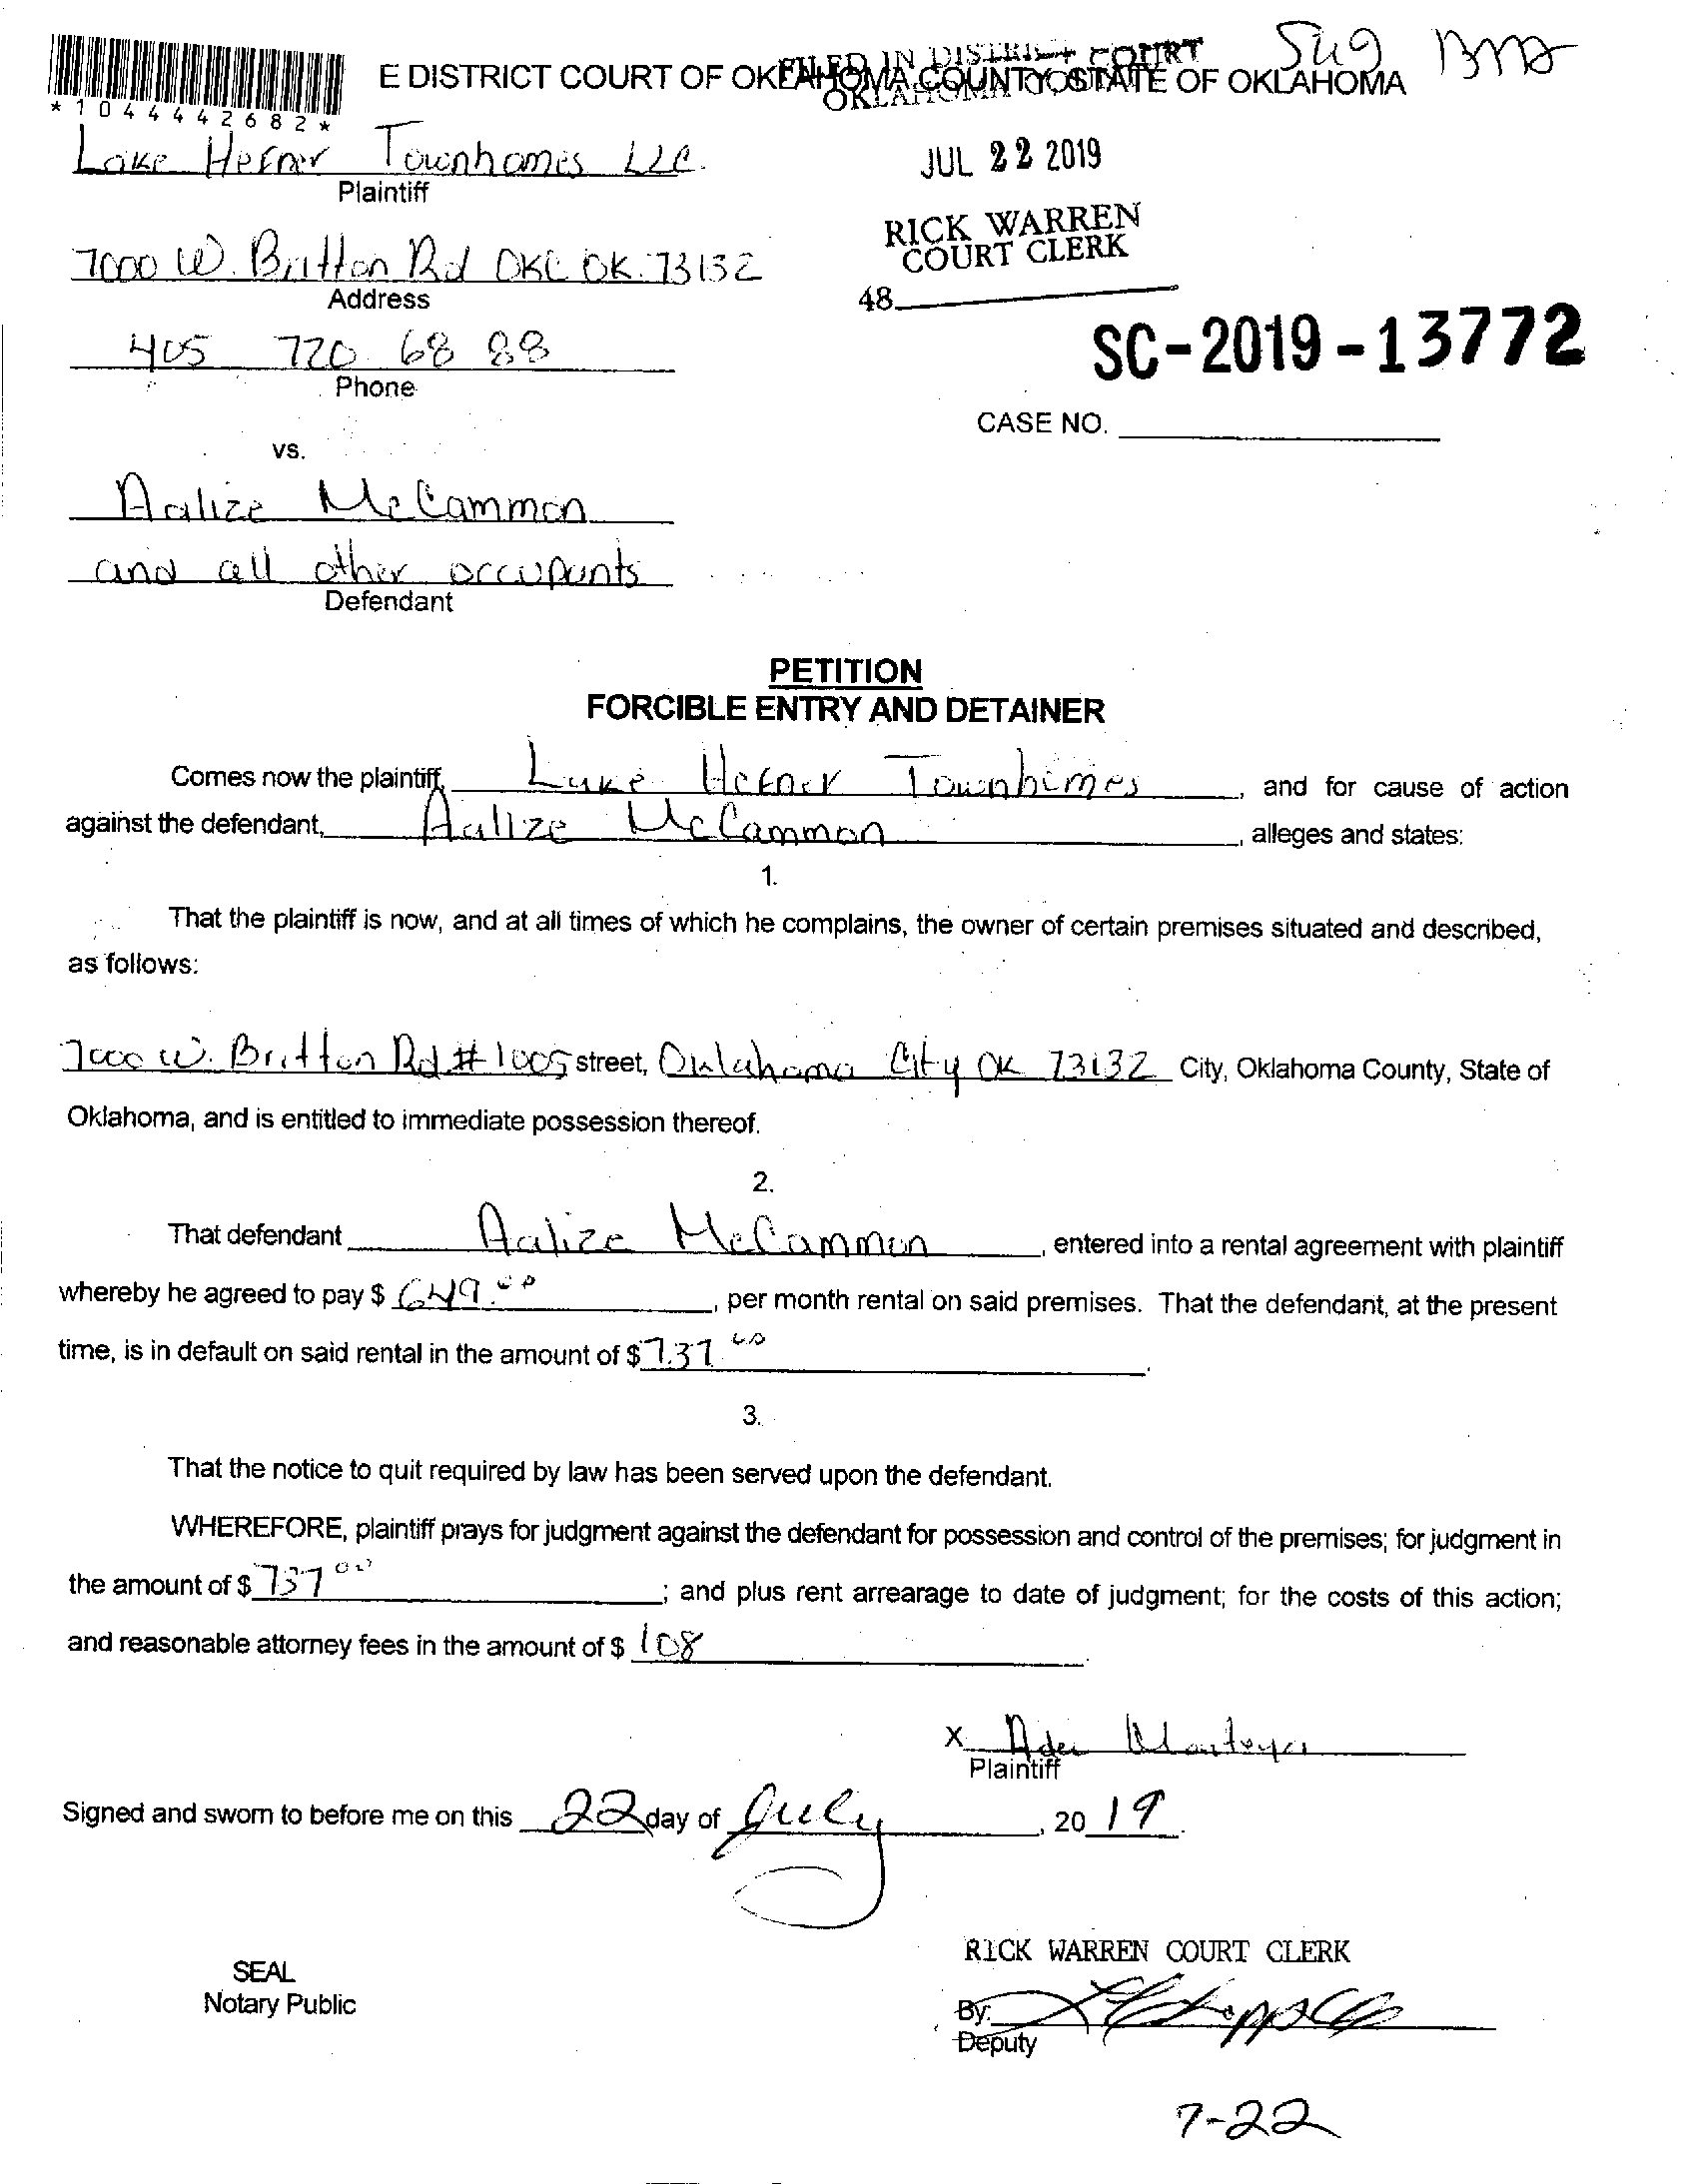 E DISTRICT COURT OF OKLAHOMA COUNTY, STATE OF OKLAHOMA
FILED IN DISTRICT COURT
OKLAHOMA COUNTY
*1044442682*
Lake Hefner Townhomes LLC.
Plaintiff
JUL 22 2019
RICK WARREN
COURT CLERK
48
7000 W. Britton Rd OKC OK. 73132
Address
405 720 68 88
Phone
SC-2019-13772
CASE NO.
vs.
Aalize McCammon
and all other occupants
Defendant
PETITION
FORCIBLE ENTRY AND DETAINER
Comes now the plaintiff, Lake Hefner Townhomes, and for cause of action
against the defendant, Aalize McCammon, alleges and states:
1.
That the plaintiff is now, and at all times of which he complains, the owner of certain premises situated and described,
as follows:
7000 W. Britton Rd # 1005 street, Oklahoma City OK 73132 City, Oklahoma County, State of
Oklahoma, and is entitled to immediate possession thereof.
2.
That defendant Aalize McCammon, entered into a rental agreement with plaintiff
whereby he agreed to pay $ 649.00, per month rental on said premises. That the defendant, at the present
time, is in default on said rental in the amount of $ 737 00.
3.
That the notice to quit required by law has been served upon the defendant.
WHEREFORE, plaintiff prays for judgment against the defendant for possession and control of the premises; for judgment in
the amount of $ 737 00; and plus rent arrearage to date of judgment; for the costs of this action;
and reasonable attorney fees in the amount of $ 108.
X
Plaintiff
Signed and sworn to before me on this 22 day of July, 2019.
SEAL
Notary Public
RICK WARREN COURT CLERK
By:
Deputy
7-22